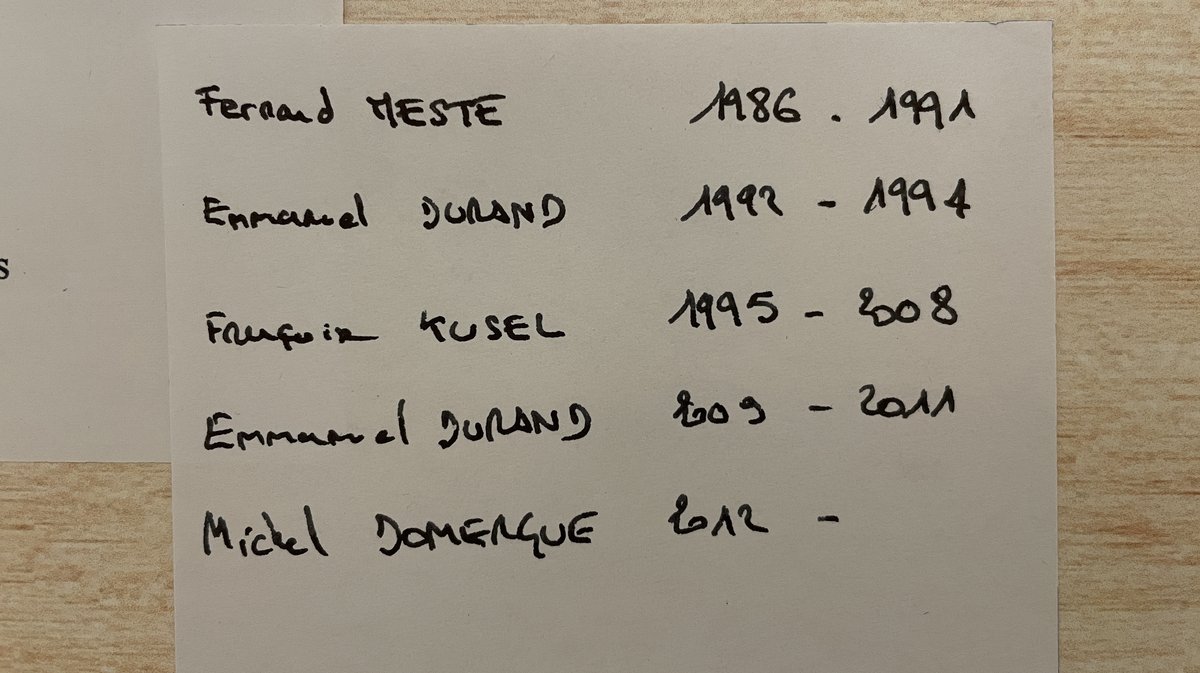 Fernand MESTE 1986 . 1991
Emmanuel DURAND 1992 - 1994
s
François KUSEL 1995 - 2008
Emmanuel DURAND 2009 - 2011
Michel DOMERGUE 2012 -